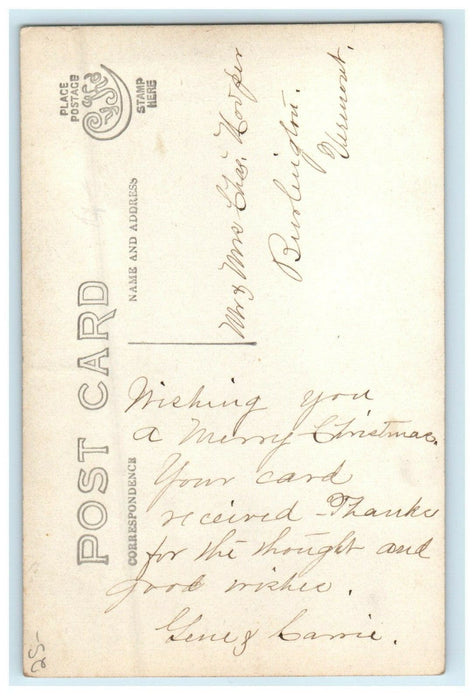 POST CARD
PLACE
POSTAGE
STAMP
HERE
CORRESPONDENCE
NAME AND ADDRESS
Wishing you
a Merry Christmas.
Your card
received - Thanks
for the thought and
good wishes.
Gene & Carrie.
Mr & Mrs Chas. Hooper
Burlington.
Vermont.
25-